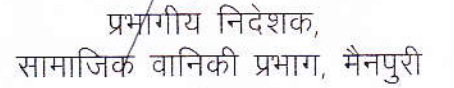 प्रभागीय निदेशक,
सामाजिक वानिकी प्रभाग, मैनपुरी